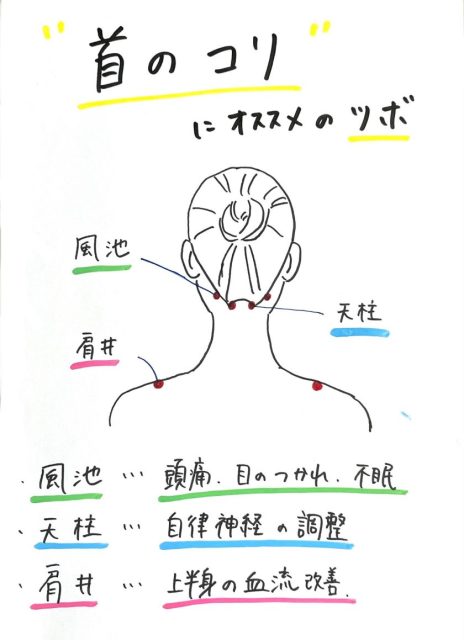 "首のコリ"
にオススメのツボ
風池
天柱
肩井
・風池 … 頭痛、目のつかれ、不眠
・天柱 … 自律神経の調整
・肩井 … 上半身の血流改善.